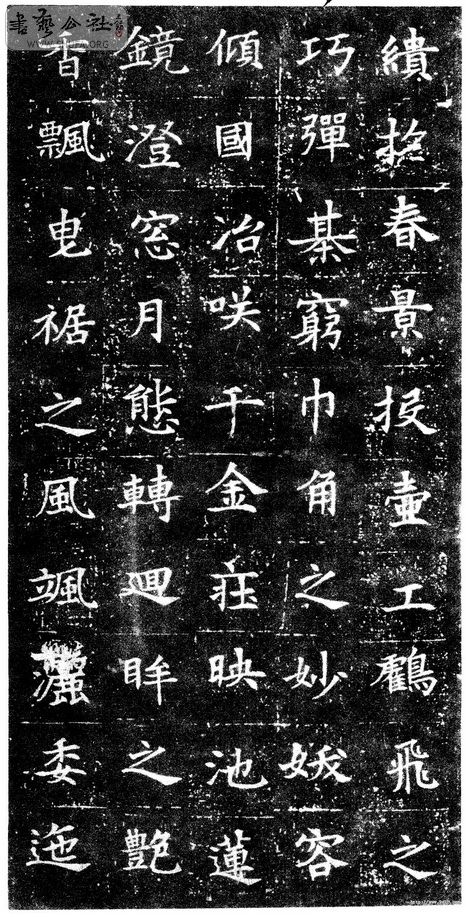 繢掞春景投壺工鸖飛之
巧彈棊窮巾角之妙妖容
傾國冶咲千金莊映池蓮
鏡澄窓月態轉迴眸之艷
香飄曳裾之風颯灑委迤
書藝公社